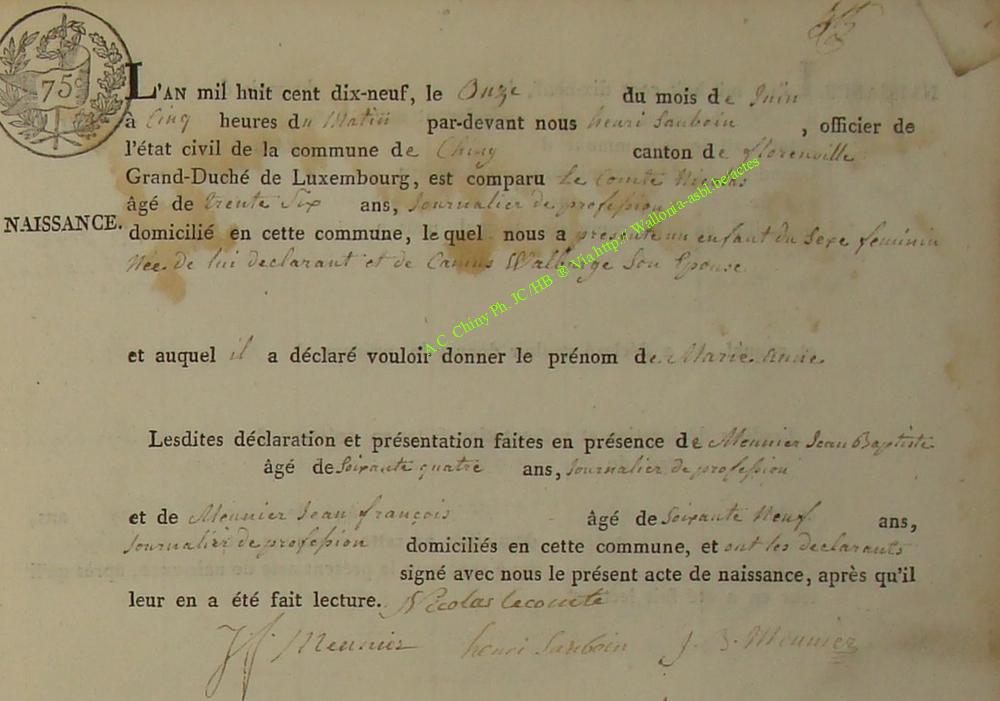 75c
L'AN mil huit cent dix-neuf, le Onze du mois de Juin
à Cinq heures du Matin par-devant nous henri Sauboin , officier de
l'état civil de la commune de Chiny canton de florenville
Grand-Duché de Luxembourg, est comparu le Comte Nicolas
âgé de trente Six ans, Journalier de profession
NAISSANCE. domicilié en cette commune, lequel nous a présenté un enfant du Sexe feminin
Née de lui declarant et de Camus Walburge Son Epouse
et auquel il a déclaré vouloir donner le prénom de Marie Anne
Lesdites déclaration et présentation faites en présence de Meunier Jean Baptiste
âgé de Soixante quatre ans, Journalier de profession
et de Meunier Jean françois âgé de Soixante Neuf ans,
Journalier de profession domiciliés en cette commune, et ont les declarants
signé avec nous le présent acte de naissance, après qu'il
leur en a été fait lecture. Nicolas lecomte
Meunier henri Sauboin J. B. Meunier
A.C. Chiny Ph. JC /HB ® Via http:\\Wallonia-asbl.be/actes